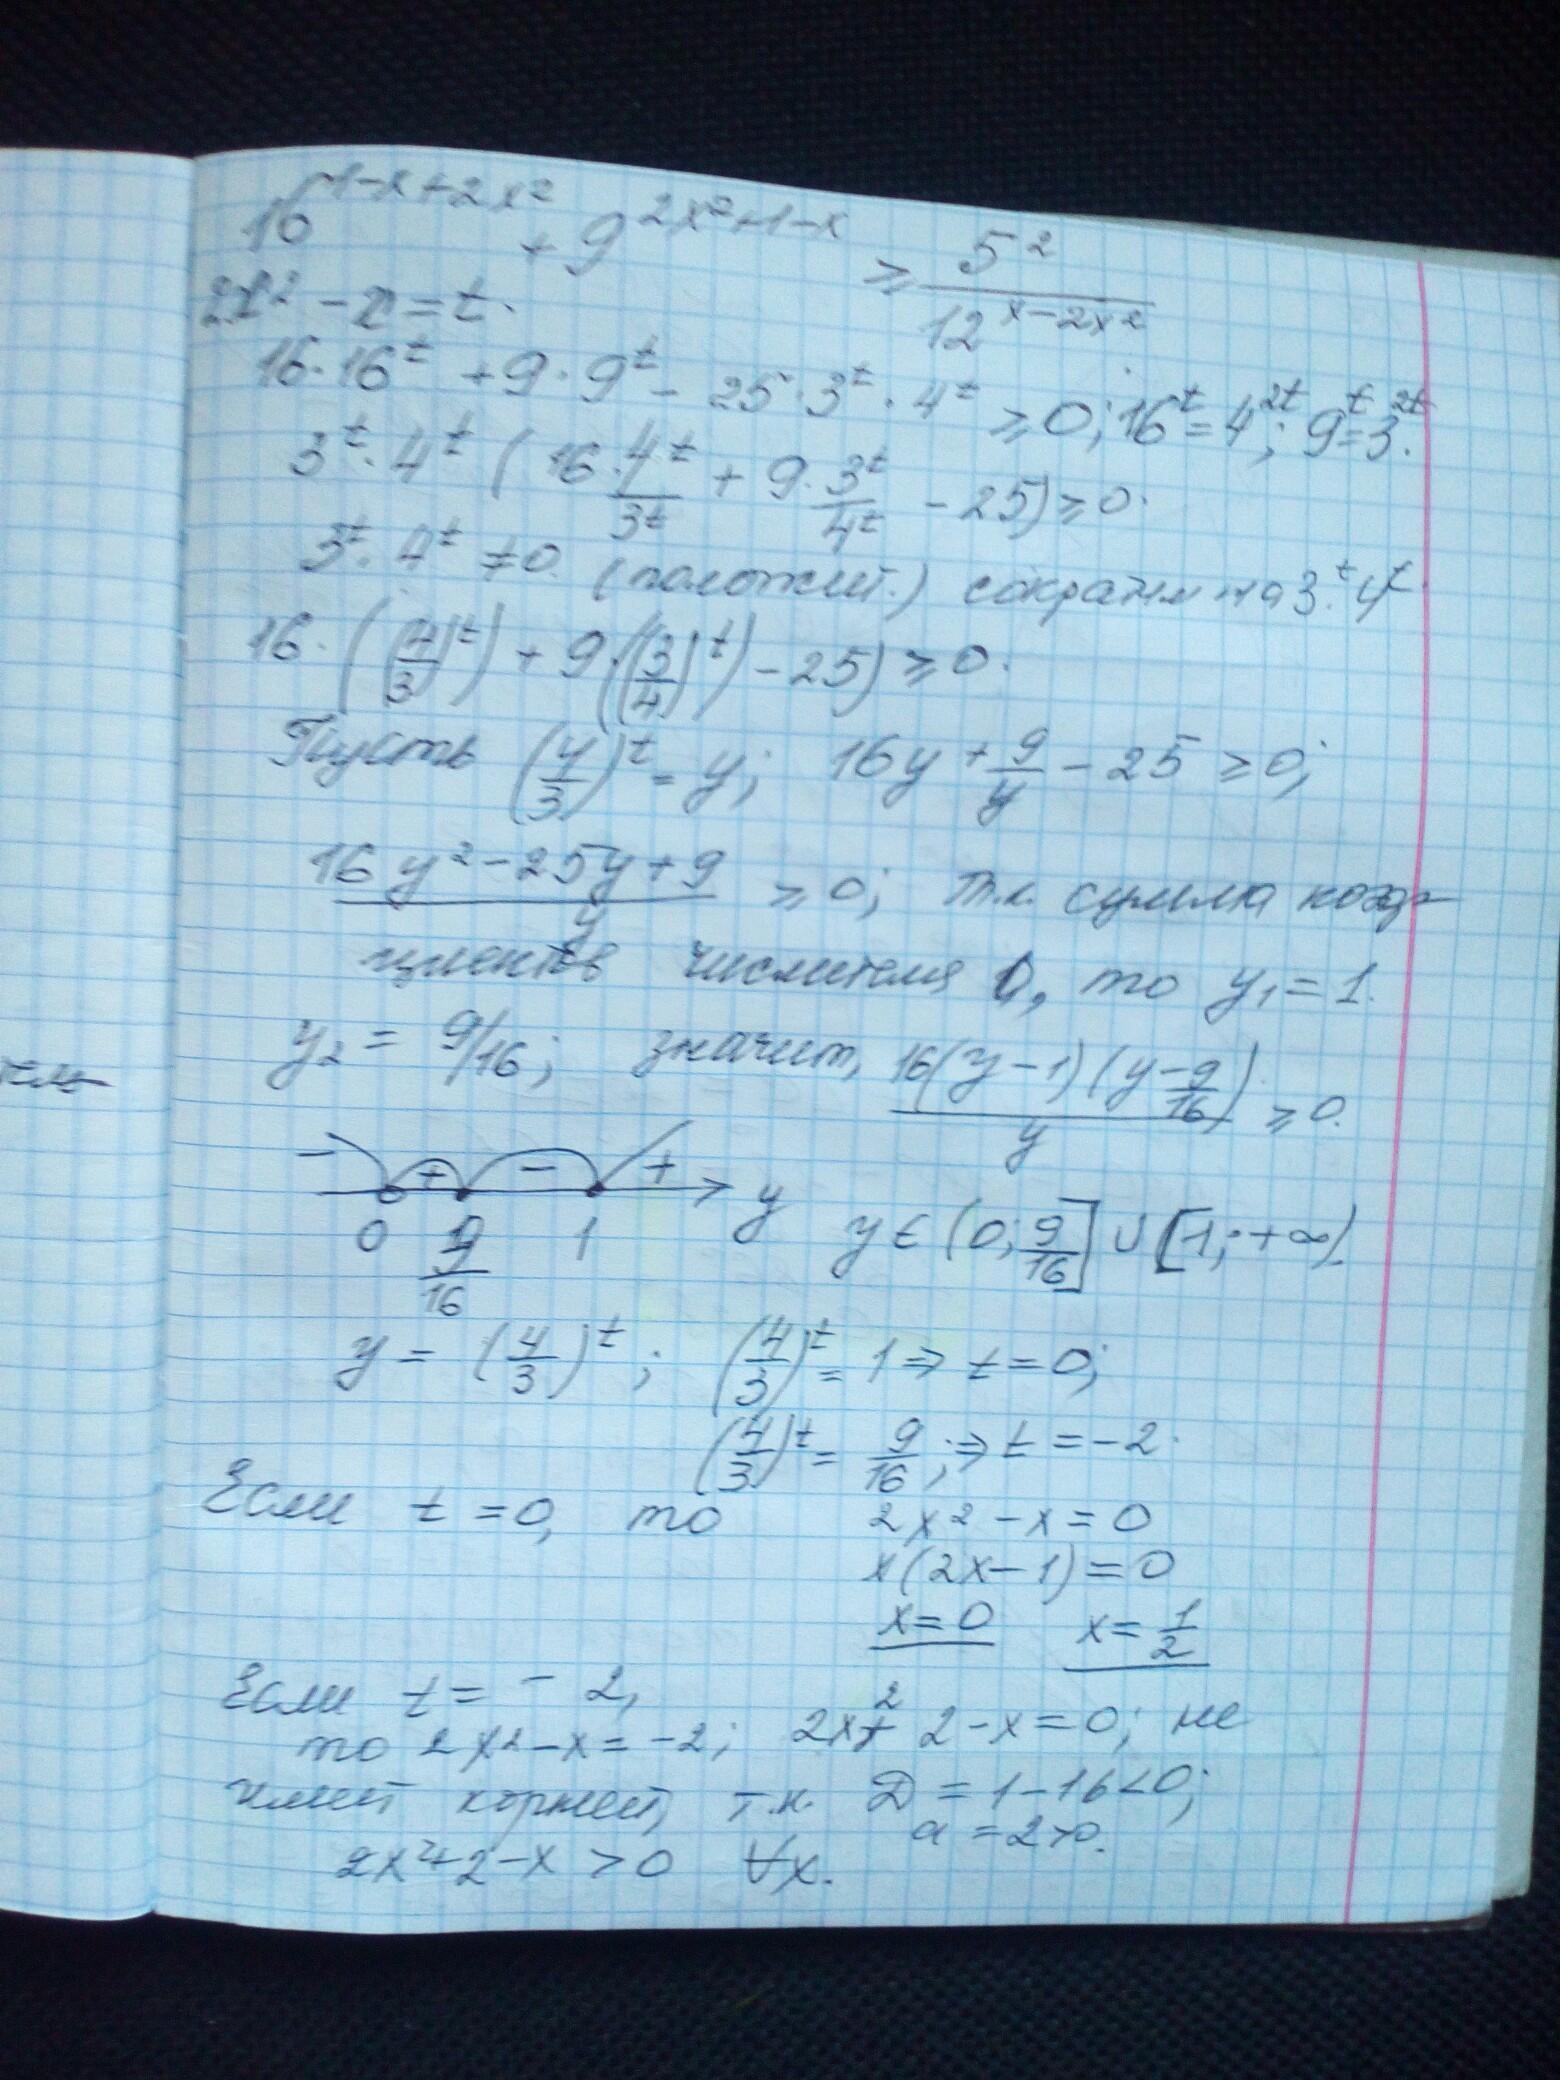 16^{1-x+2x²} + 9^{2x²+1-x} ≥ 5²/12^{x-2x²}
2x² - x = t.
16·16^t + 9·9^t - 25·3^t·4^t ≥ 0; 16^t = 4^{2t}; 9^t = 3^{2t}.
3^t·4^t (16·4^t/3^t + 9·3^t/4^t - 25) ≥ 0.
3^t·4^t ≠ 0. (положит.) сократим на 3^t·4^t
16·((4/3)^t) + 9·((3/4)^t) - 25) ≥ 0.
Пусть (4/3)^t = y; 16y + 9/y - 25 ≥ 0;
(16y² - 25y + 9)/y ≥ 0; т.к. сумма коэф-
циентов числителя 0, то y₁ = 1.
y₂ = 9/16; значит, 16(y-1)(y-9/16)/y ≥ 0.
- + - + y
0 9/16 1 y ∈ (0; 9/16] ∪ [1; +∞)
y = (4/3)^t; (4/3)^t = 1 ⇒ t = 0;
(4/3)^t = 9/16; ⇒ t = -2.
Если t = 0, то 2x² - x = 0
x(2x-1) = 0
x = 0 x = 1/2
Если t = -2,
то 2x² - x = -2; 2x² + 2 - x = 0; не
имеет корней, т.к. D = 1 - 16 < 0;
a = 2 > 0.
2x² + 2 - x > 0 ∀x.